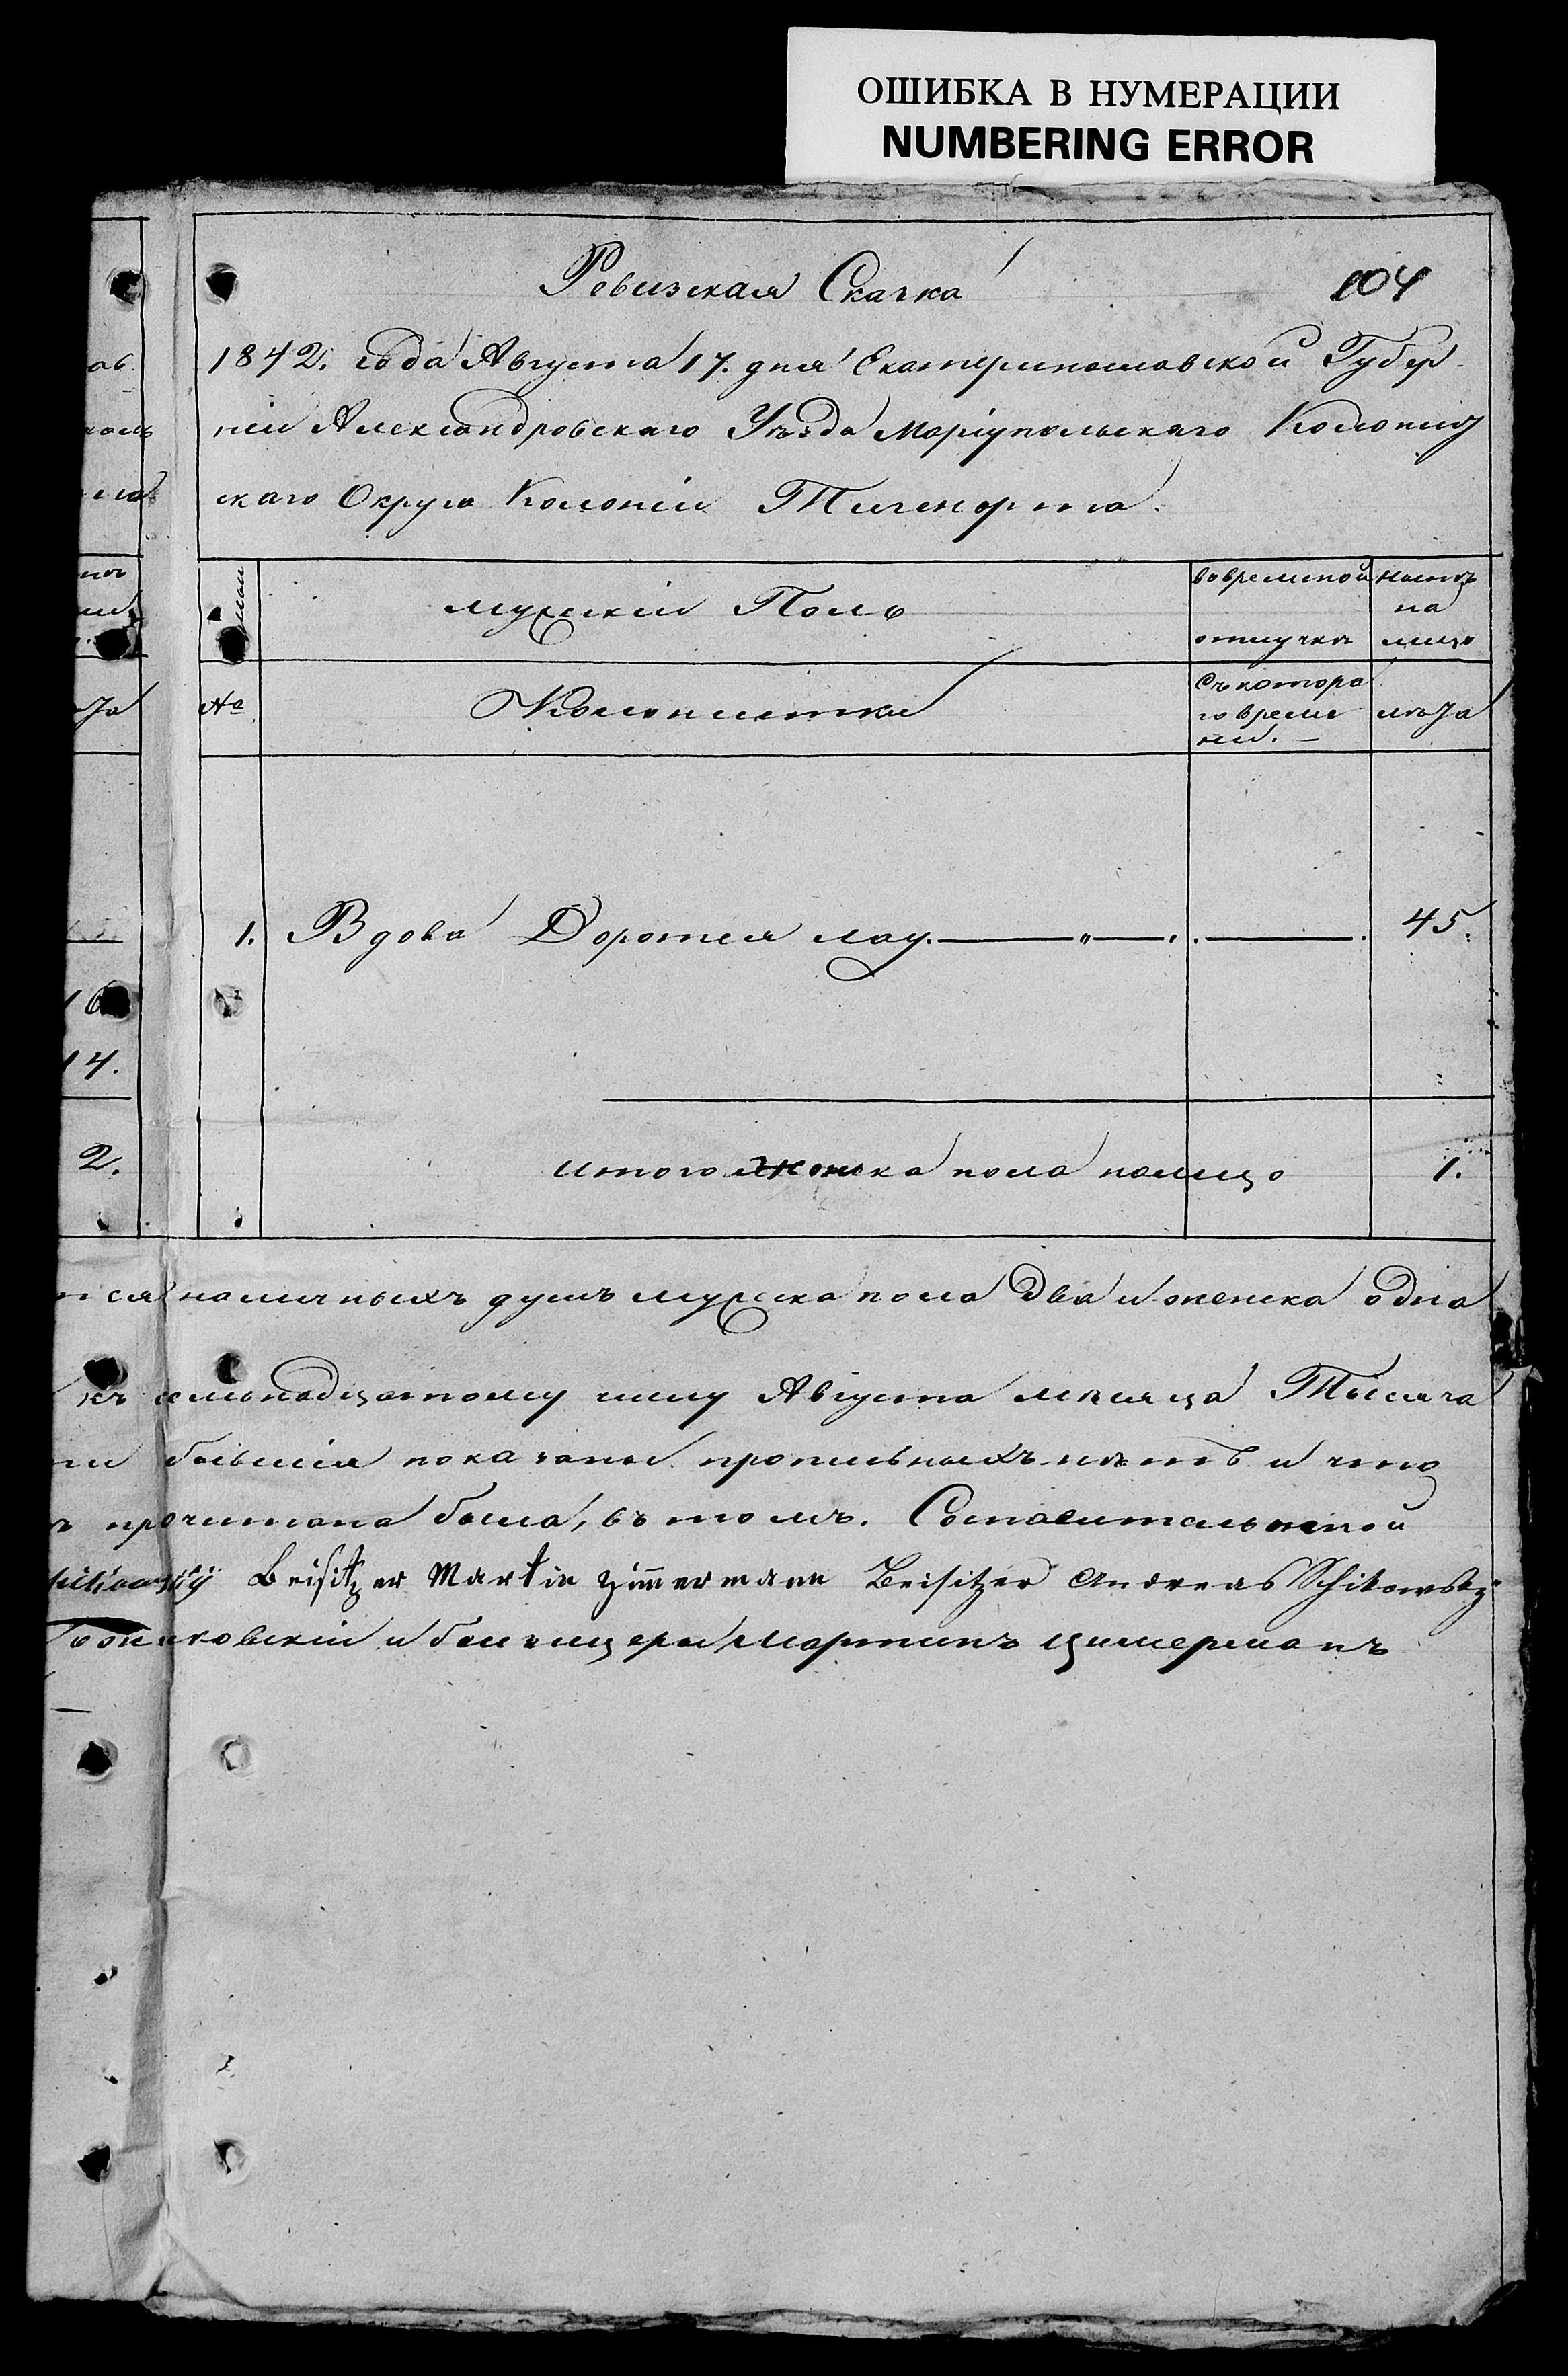 ОШИБКА В НУМЕРАЦИИ
NUMBERING ERROR
Ревизская Скачка
104
1842. года Августа 17. дня Екатеринославской Губер-
ніи Александровскаго Уѣзда Маріупольскаго Колонис
скаго Округа Колоніи Тигенорта.
мужскій Полъ
во временной
отлучкѣ
на
лицо
№
Колонистки
Съ котора
го време
ни. —
лѣта
1. Вдова Доротея лау. 45.
16
14.
2.
итого женска пола налицо 1.
наличныхъ душъ мужска пола два и женска одна
къ семьнадцатому числу Августа мѣсяца Тысяча
показаны прописныхъ нѣтъ и что
прочитана была, въ томъ.
Beisitzer Martin Zimmermann Beisitzer Andreas Schikowsky
Мартинъ цимерманъ